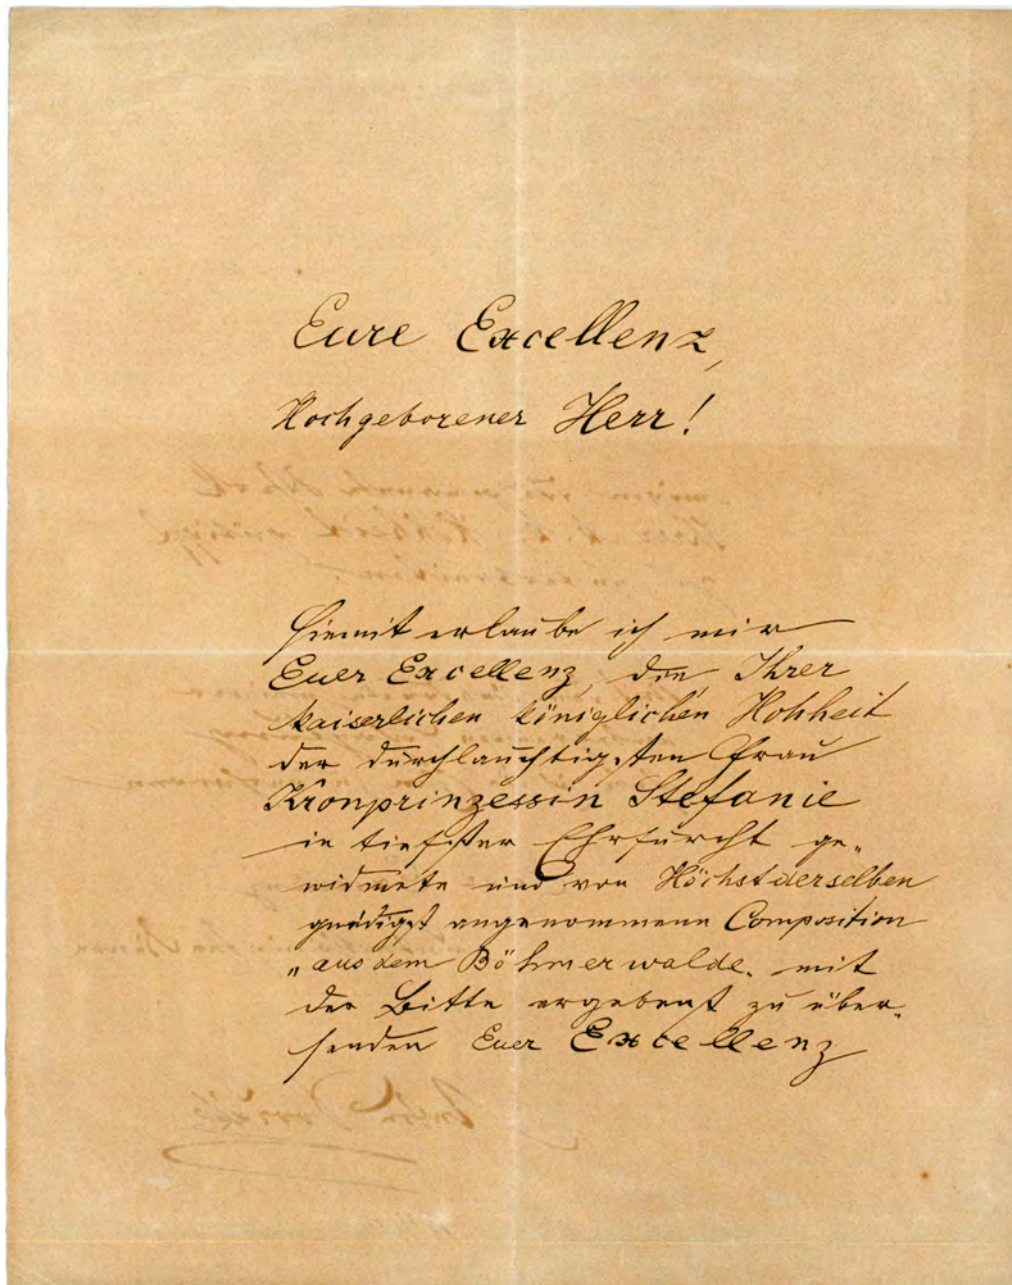 Eure Excellenz,
Hochgeborener Herr!
Hiemit erlaube ich mir
Euer Excellenz, die Ihrer
kaiserlichen königlichen Hohheit
der durchlauchtigsten Frau
Kronprinzessin Stefanie
in tiefster Ehrfurcht ge„
widmete und von Höchstderselben
gnädigst angenommene Composition
„aus dem Böhmerwalde„ mit
der Bitte ergebenst zu über„
senden Euer Excellenz